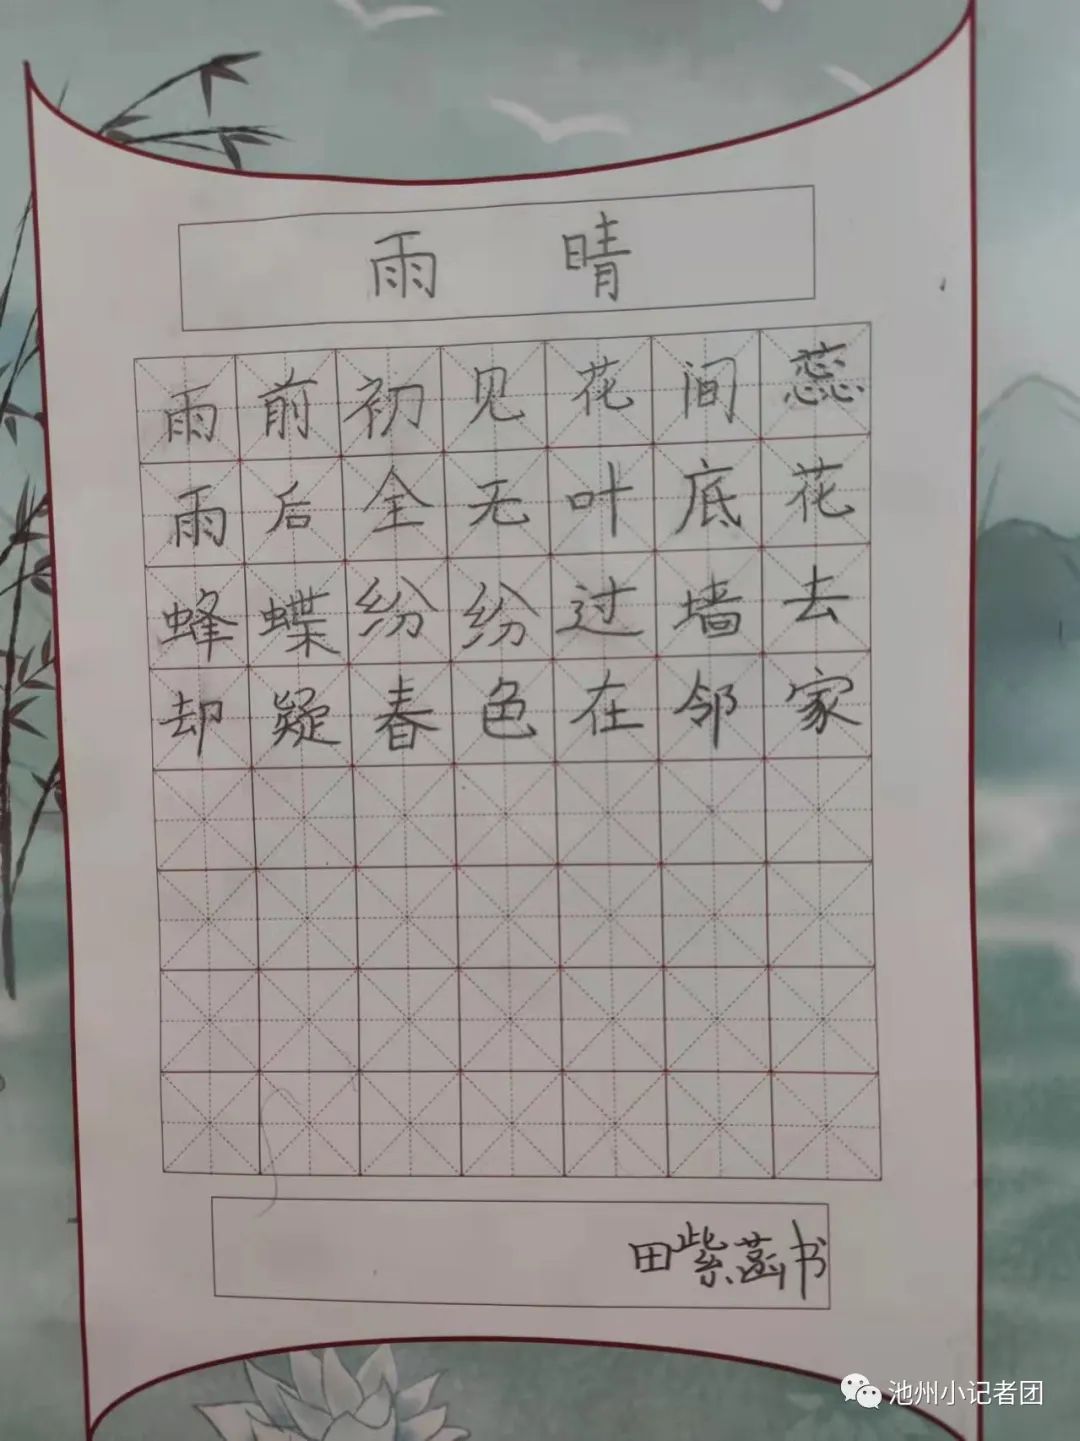 雨 晴
雨前初见花间蕊
雨后全无叶底花
蜂蝶纷纷过墙去
却疑春色在邻家
田紫菡书
池州小记者团